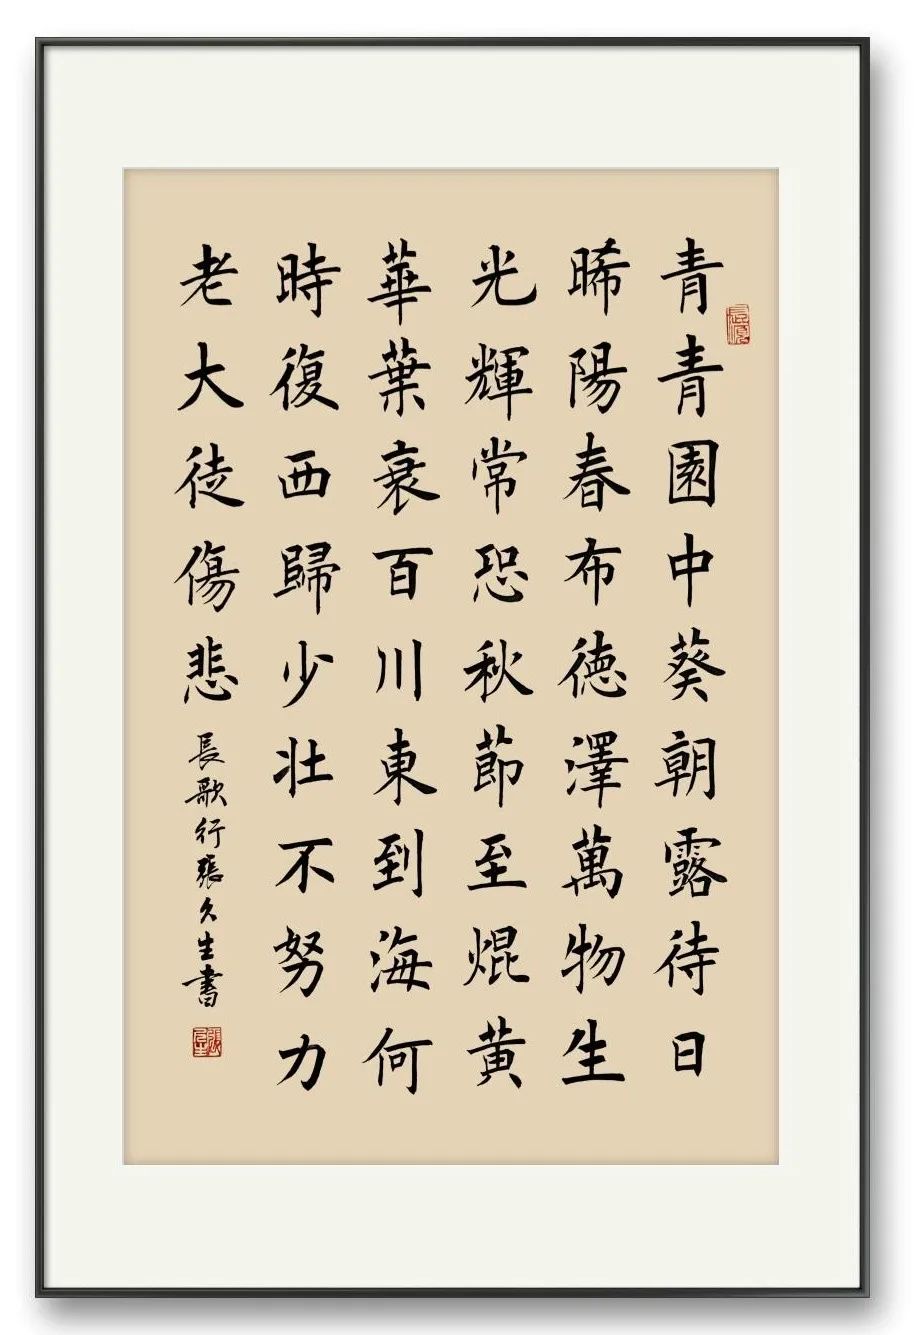 青青園中葵朝露待日
晞陽春布德澤萬物生
光輝常恐秋節至焜黃
華葉衰百川東到海何
時復西歸少壯不努力
老大徒傷悲 長歌行張久生書